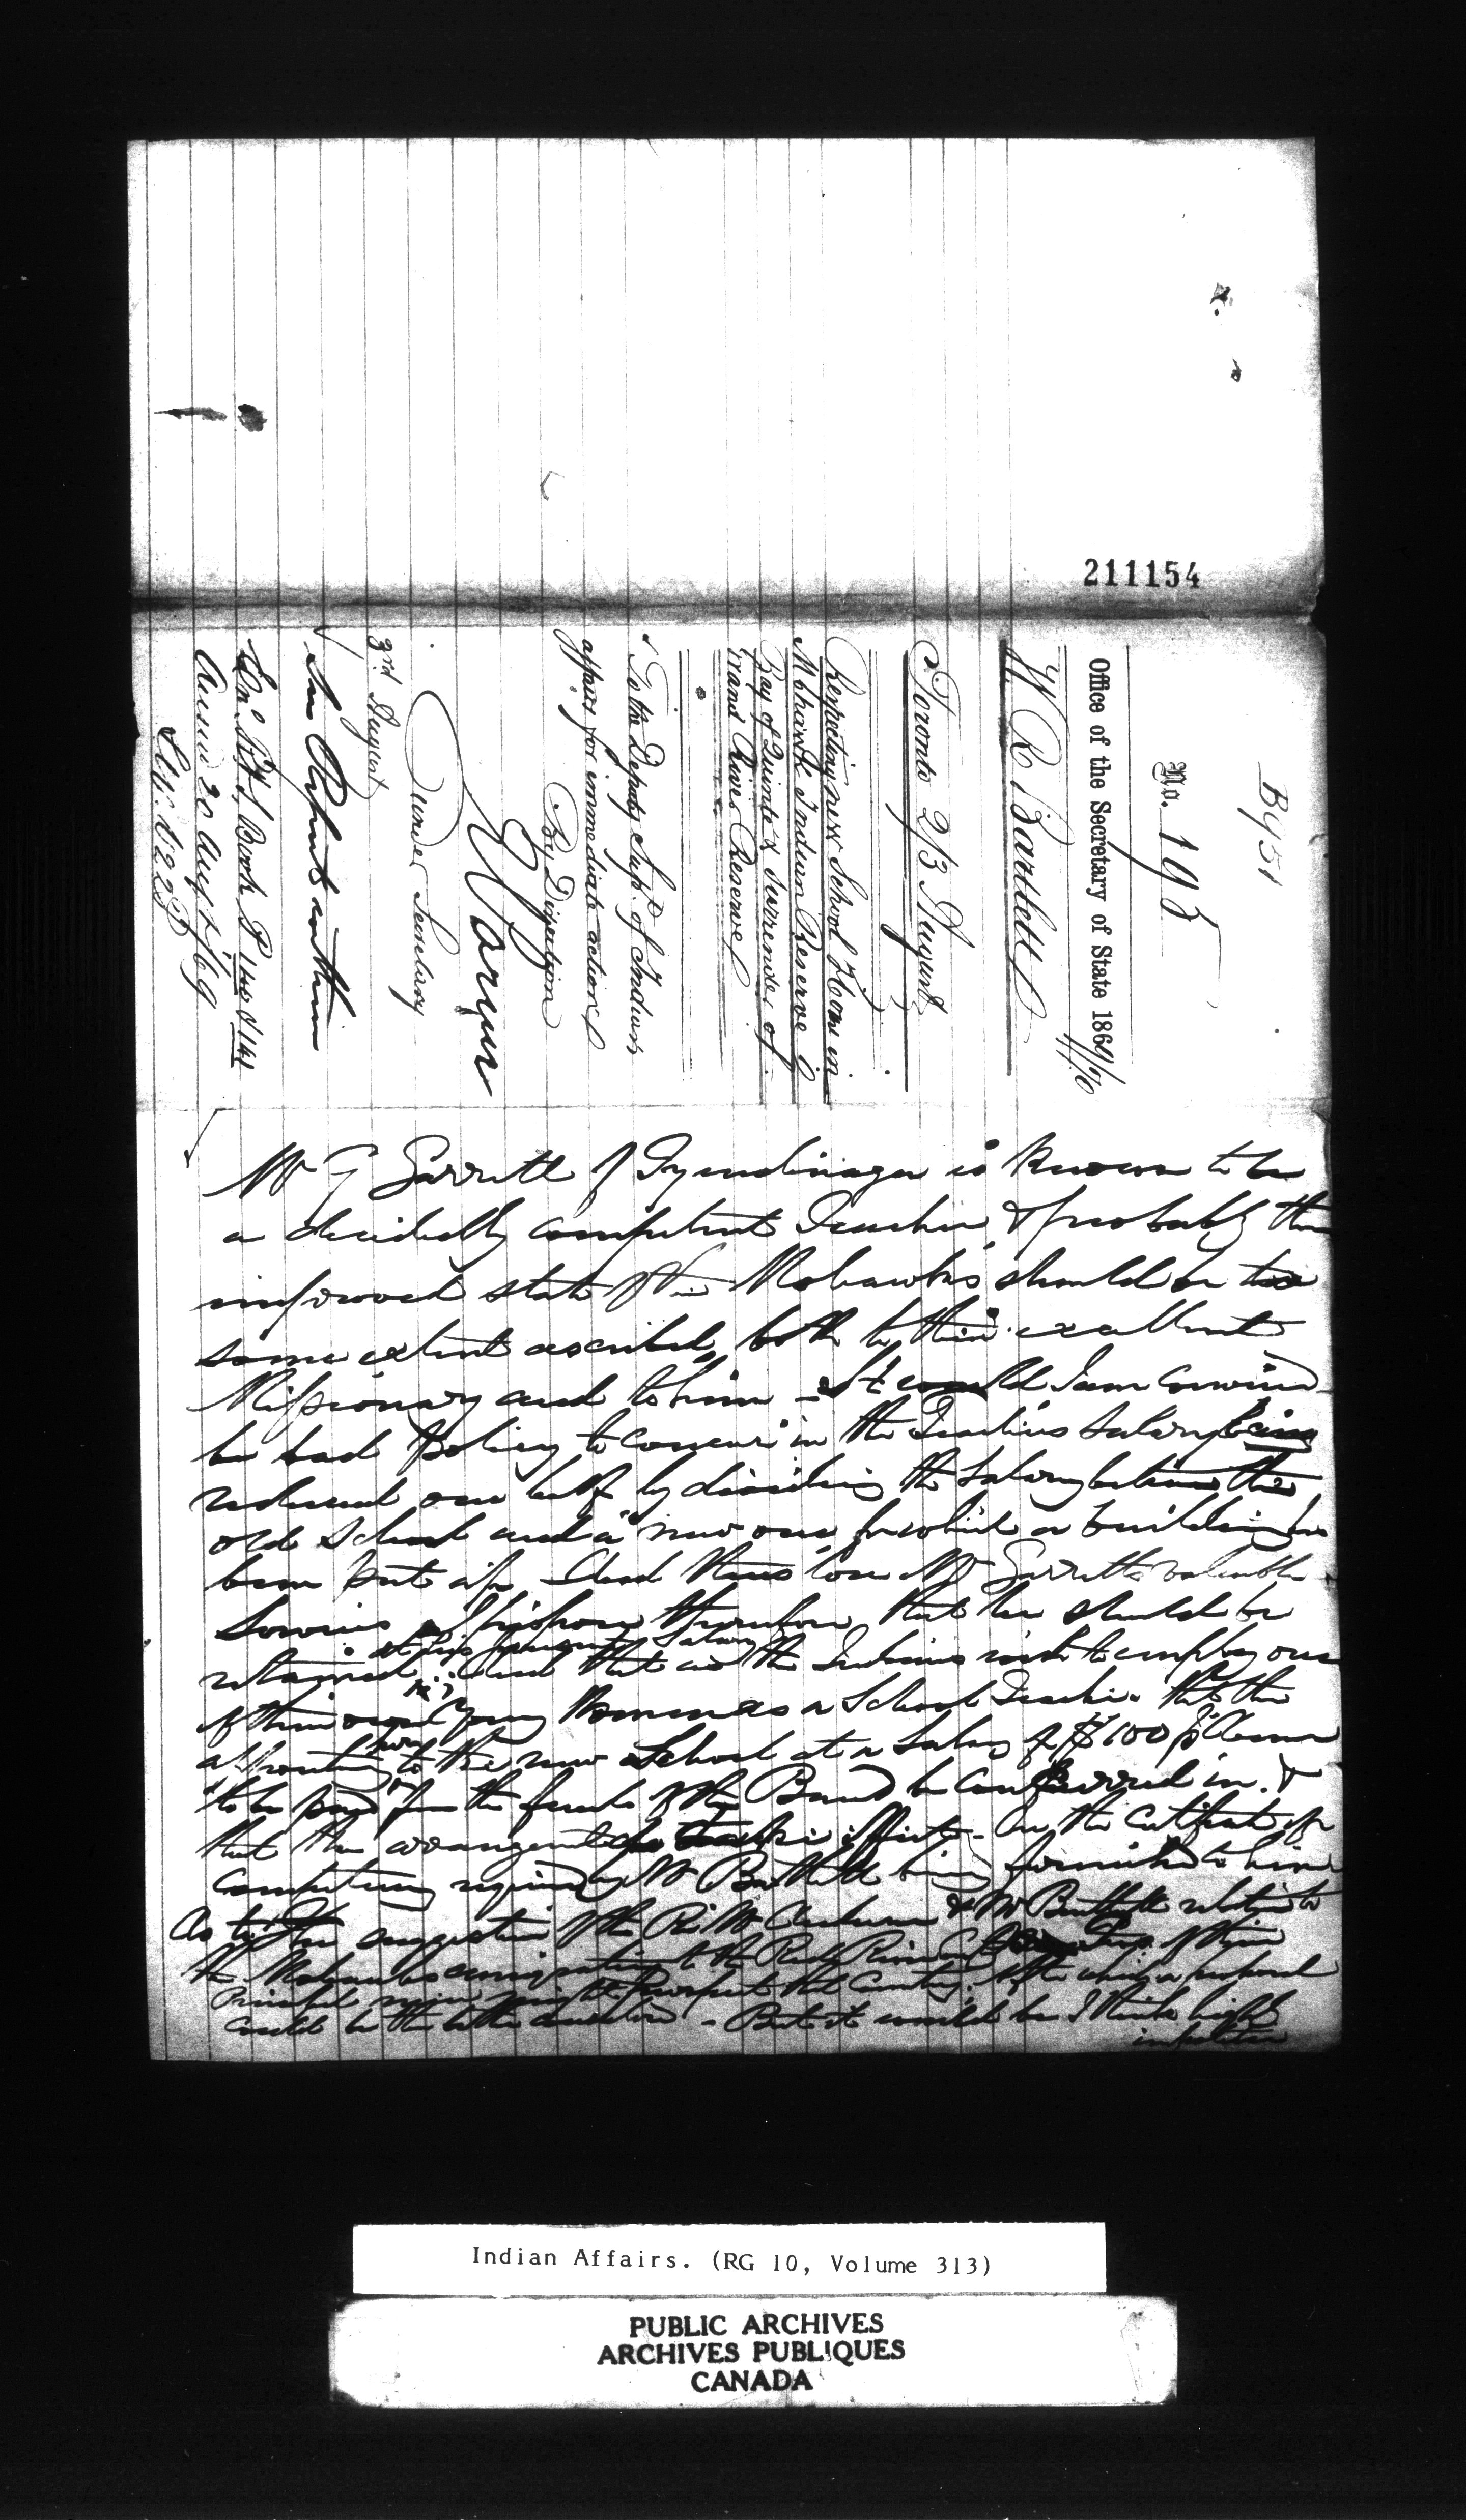 211154
By 51
No. 195
Office of the Secretary of State 1869
W R Bartlett
Toronto 2/3 August
Respecting new School House in
Mohawk Indian Reserve
Bay of Quinté & surrender of
Grand River Reserve
To the Deputy Supt. of Indian
affairs for immediate action
By Direction
E Parent
Under Secretary
3rd August
See Report within
Book P 140 & 141
20 Augt /69
Mr G Garrett of Tyendinaga is known to be
a decidedly competent Teacher & probably the
improved state of the Mohawks should be to
some extent ascribed both to their excellent
Missionary and to him - It would I am convinced
be bad policy to concur in the Teacher's Salary being
reduced one half by dividing the Salary between the
old School and a new one for which a building has
been put up and thus lose Mr Garrett's valuable
Services I propose therefore that he should be
at his present Salary
retained and that as the Indians wish to employ one
of their own young women as a School Teacher that the
appointing to the new School at a Salary of $100 p Annum
to be paid from the funds of the Band be concurred in &
that the arrangement take effect on the certificate of
competency required by Mr Bartlett being furnished to him
As to the suggestion of the & Mr Bartlett relative to
the Mohawks emigrating to the Red River of their
principal men might that Country
could be the better - But it would be I think highly